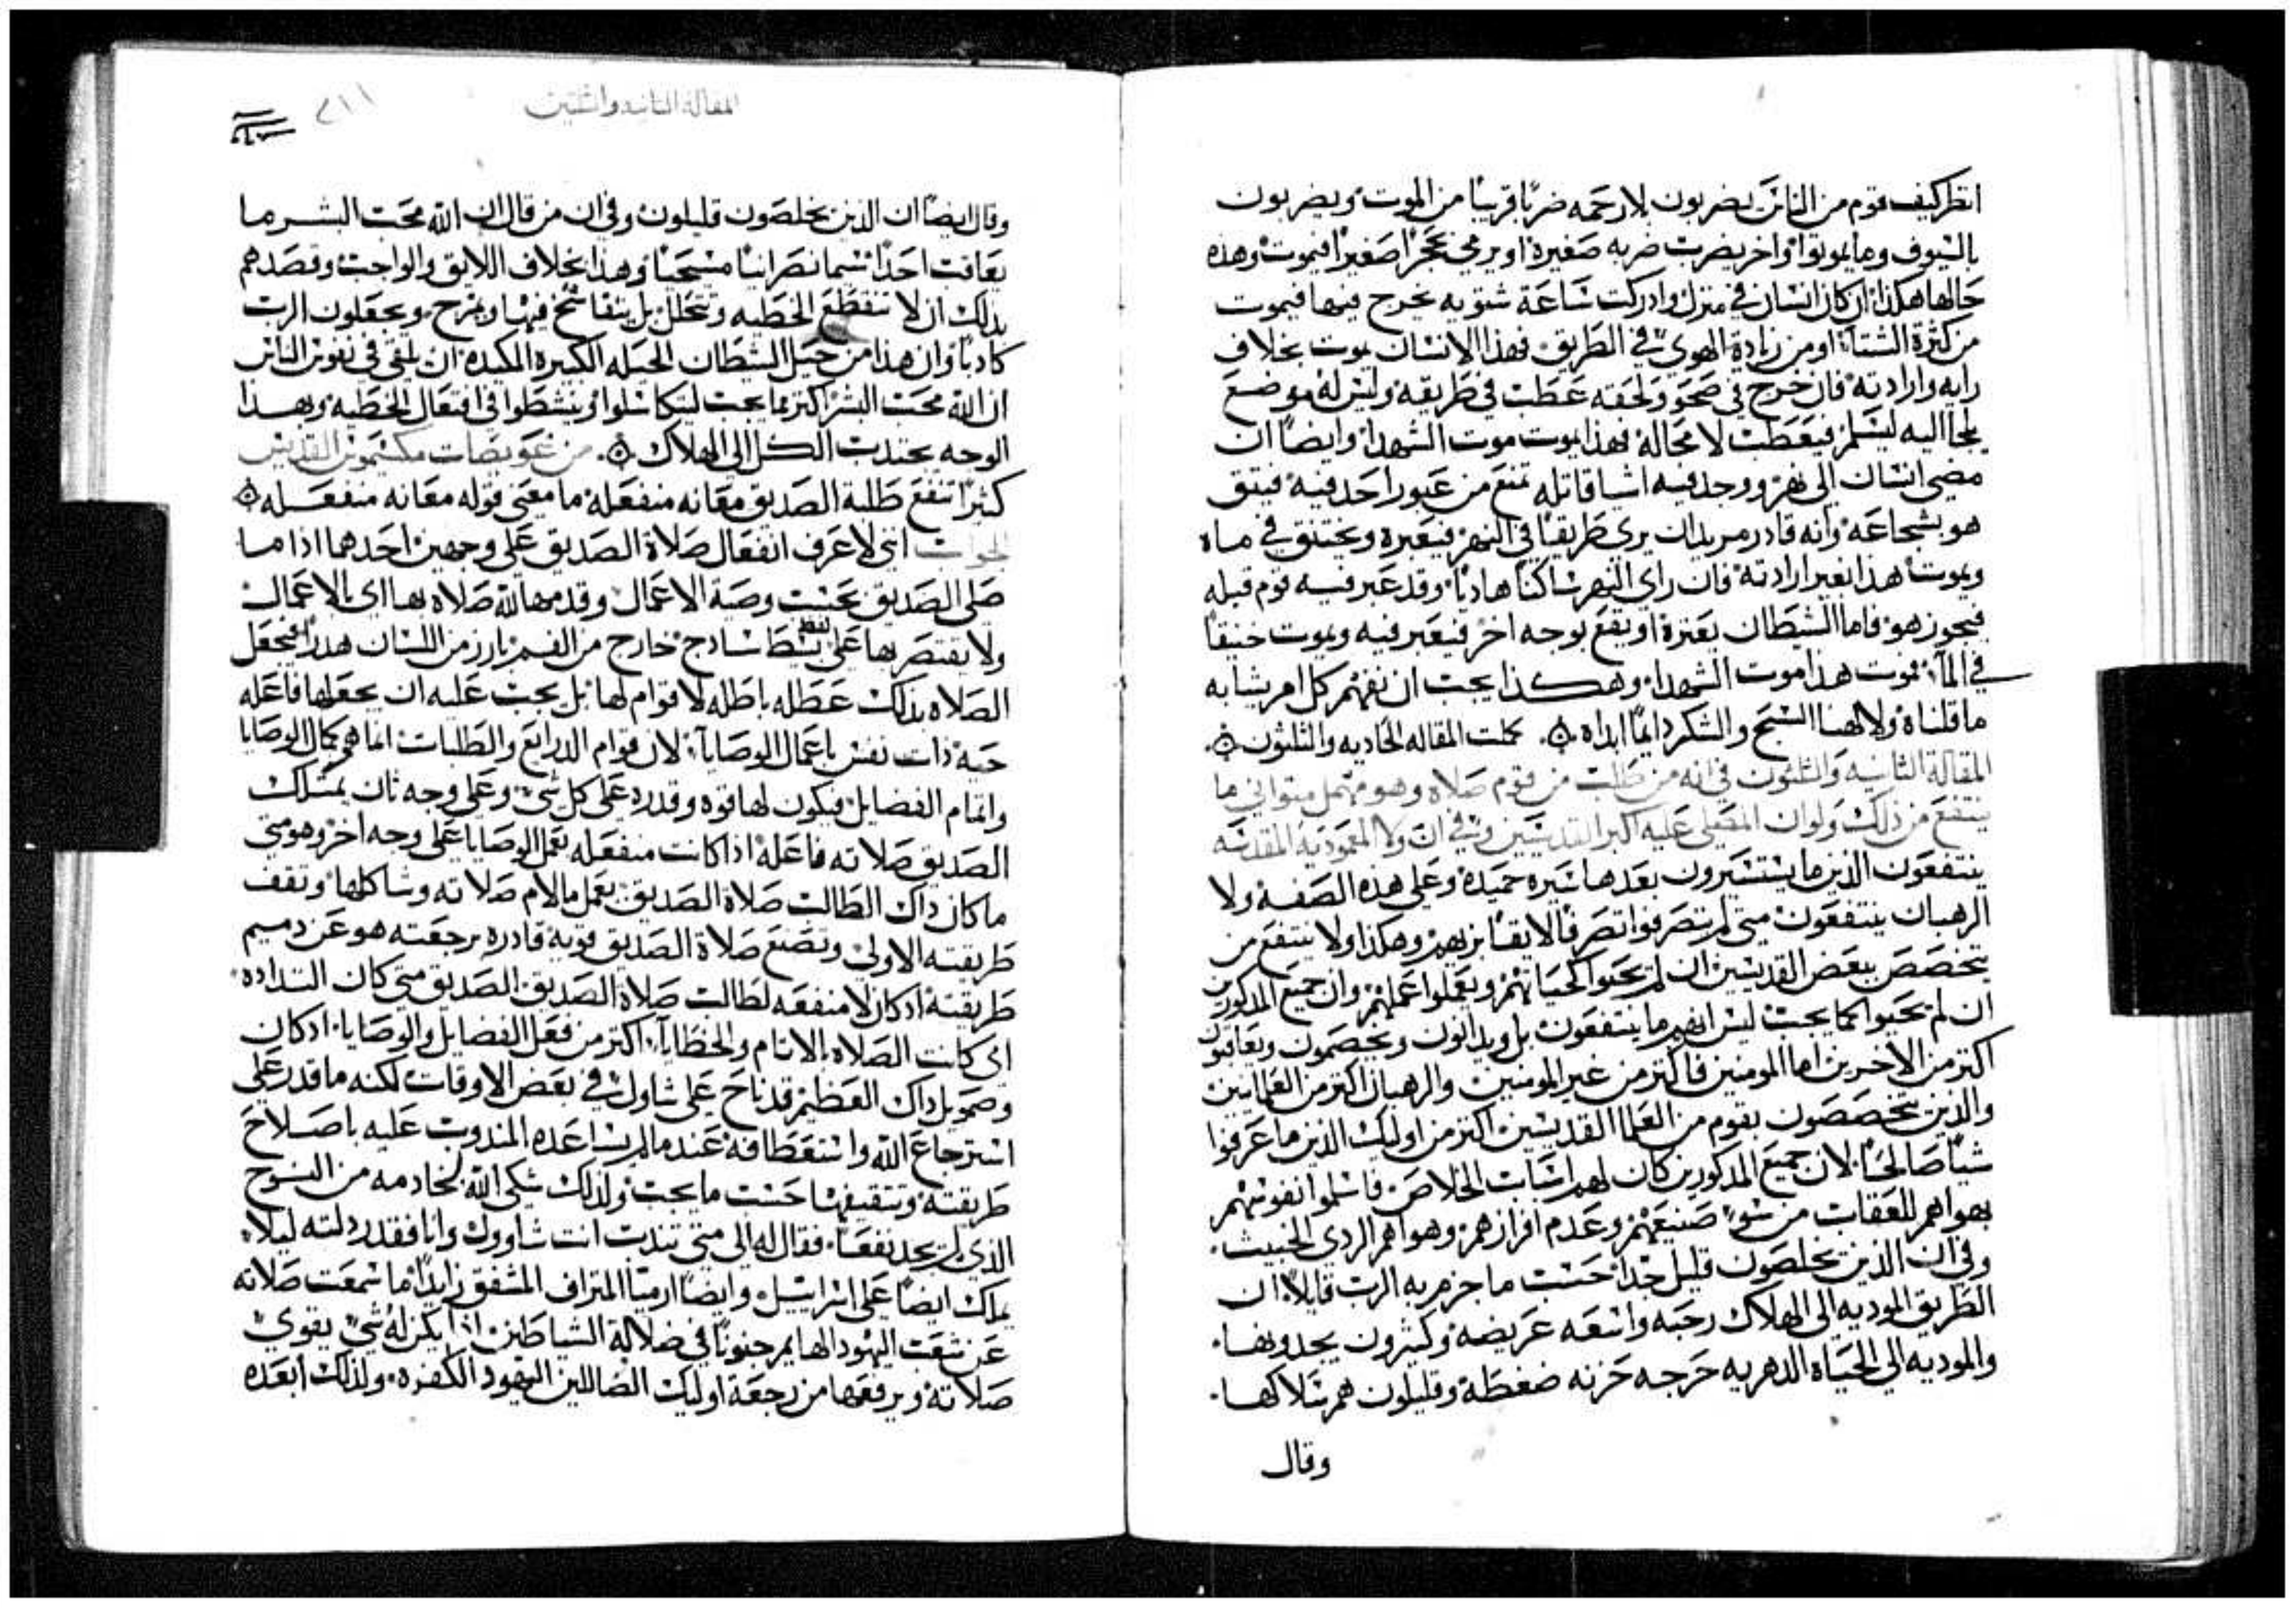 انظر كيف قوم من الناس يضربون بلا رحمه ضربًا قريبًا من الموت ويضربون
بالسيوف وما يموتوا واخر يضرب ضربه صغيرة او يرمي بحجرًا صغيرًا فيموت وهذه
حالها هكذا ان كان انسان في منزل وادركت ساعة شتويه يخرج فيها فيموت
من كثرة الشتاء او من زيادة الهوي في الطريق فهذا الانسان يموت بخلاف
رايه وارادته فان خرج في صحو ولحقه عطب في طريقه وليس له موضع
يلجا اليه ليسلم فيعطب لا محالة فهذا يموت موت الشهدا وايضًا ان
مضي انسان الى نهر ووجد فيه اشيا قاتله تمنع من عبور احد فيه فيثق
هو بشجاعه وانه قادر مريدا ان يرى طريقًا في النهر فيعبره ويختنق في ماه
ويموت هذا بغير ارادته فان راي النهر ساكنًا هاديًا وقد عبر فيه قوم قبله
فيجوز هو فاما الشيطان يعتره او يقع بوجه اخر فيعبر فيه ويموت خنيقًا
في الماء فموت هذا موت الشهدا وهكذا يجب ان نفهم كل امر يشابه
ما قلناه ولالهنا السبح والشكر دايمًا ابداه ۞ كملت المقاله الحاديه والثلثون ۞
المقالة الثانيه والثلثون في انه من طلب من قوم صلاه وهو مهمل متواني ما
ينتفع من ذلك ولو ان المصلي عليه اكبر القديسين وفي ان ولا المعمودية المقدسه
ينتفعون الذين ما يستسيرون بعدها سيره حميدة وعلى هذه الصفة ولا
الرهبان ينتفعون متى لم يتصرفوا تصرفًا لايقًا بزيهم وهكذا ولا ينتفع من
يتخصص ببعض القديسين ان لم يحيوا كحياتهم ويعملوا عملهم وان جميع المذكورين
ان لم يحيوا كما يجب ليس انهم ما ينتفعون بل ويدانون ويخصمون ويعاقبون
اكثر من الاخرين اما المومنين فاكثر من غير المومنين والرهبان اكثر من العلمانيين
والذين يتخصصون بقوم من العلما القديسين اكثر من اوليك الذين ما عرفوا
شيًا صالحًا لان جميع المذكورين كان لهم اسباب الخلاص فاسلموا نفوسهم
بهواهم للعقاب من سو صنيعهم وعدم افرازهم وهواهم الردي الخبيث
وفي ان الذين يخلصون قليل جدًا حسب ما جزم به الرب قايلًا ان
الطريق الموديه الى الهلاك رحبه واسعه عريضه وكثيرون يجدونها
والموديه الي الحياه الدهريه حرجه حزنه ضغطة وقليلون هم سلاكها
وقال
المقالة الثانيه والثلثين
وقال ايضًا ان الذين يخلصون قليلون وفي ان من قال ان الله محب البشر ما
يعاقب احدًا سيما نصرانيًا مسيحيًا وهذا بخلاف اللايق والواجب وقصدهم
بذلك ان لا تنقطع الخطيه وتتحلل بل يتفاسخ فيها ويمرح ويجعلون الرب
كاذبًا وان هذا من حيل الشيطان الحيله الكبيره المكيده ان يلقي في نفوس الناس
ان الله محب البشر اكثر مما يجب ليتكاسلوا وينشطوا في افتعال الخطيه وبهذا
الوجه يجتذب الكل الى الهلاك ۞ من عويصات مكسيموس القديس
كثيرًا تنفع طلبة الصديق معانه منفعله ما معنى قوله معانه منفعله ۞
الجواب انني لا عرف انفعال صلاة الصديق على وجهين احدهما اذا ما
صلى الصديق بحسب وصية الاعمال وقدمها لله صلاه بها اي بالاعمال
ولا يقتصر بها على لفظ بسيط سادج خارج من الفم بارز من اللسان هدرًا فيجعل
الصلاه بذلك عطله باطله لا قوام لها بل يجب عليه ان يجعلها فاعله
حيه ذات نفس باعمال الوصايا لان قوام الدرايع والطلبات انما هو كمال الوصايا
واتمام الفضايل فيكون لها قوه وقدره على كل شي وعلى وجه ثان يمتلك
الصديق صلاته فاعله اذا كانت منفعله بعمل الوصايا على وجه اخر وهو متى
ما كان ذاك الطالب صلاة الصديق يعمل ما لام صلاته وشاكلها وتقف
طريقته الاولى وتصنع صلاة الصديق قويه قادره برجعته هو عن دميم
طريقته اذ كان لا منفعه لطالب صلاة الصديق الصديق متى كان التداده
اي كانت الصلاه بالاثام والخطايا اكثر من فعل الفضايل والوصايا اد كان
وصمويل ذاك العظيم قد ناح على شاول في بعض الاوقات لكنه ما قدر على
استرجاع الله واستعطافه عندما لم يساعده المندوب عليه باصلاح
طريقته وتثقيفها حسب ما يجب ولذلك شكى الله لخادمه من النوح
الذي لم يجد نفعًا فقال له الى متى تندب انت شاوول وانا فقد رذلته ليلا
يملك ايضًا على اسراييل وايضًا ارميا المتراف المشفق زايدًا ما سمعت صلاته
عن شعب اليهود الهايم جنونًا في ضلالة الشياطين اذا لم يكن له شي يقوي
صلاته ويرفعها من رجعة اوليك الضاللين اليهود الكفره ولذلك ابعده